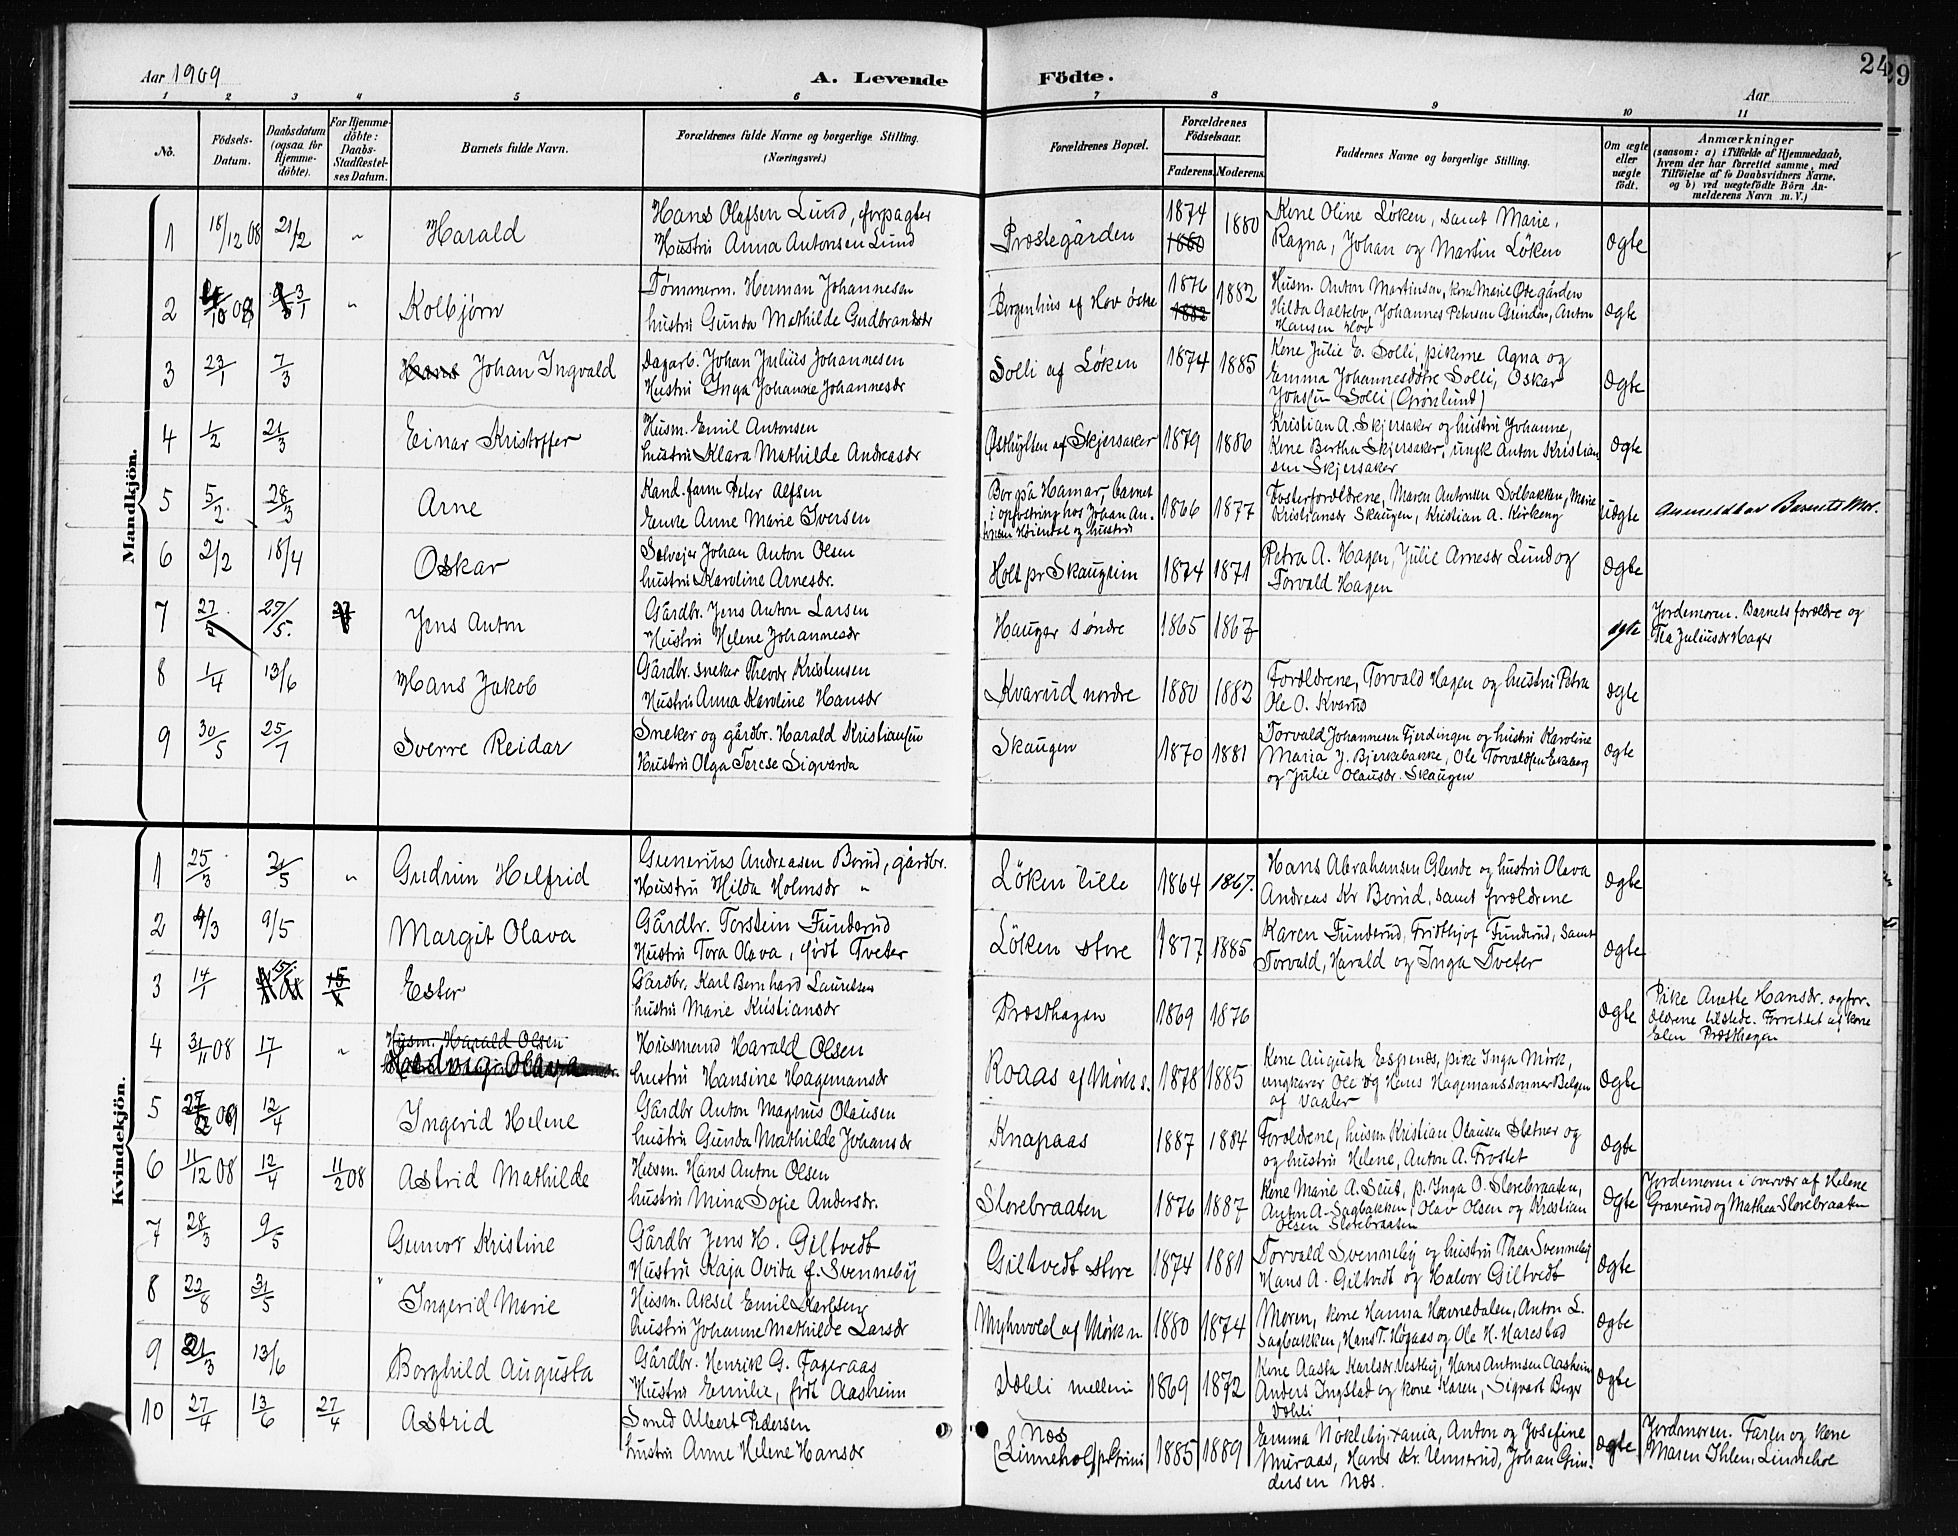 Aar 1909
A. Levende Födte.
Aar
24
29
1 2 3 4 5 6 7 8 9 10 11
No.
Födsels-Datum.
Daabsdatum (ogsaa for Hjemme-döbte).
For Hjemme-döbte: Daabs-Stadfæstel-ses Datum.
Barnets fulde Navn.
Forældrenes fulde Navne og borgerlige Stilling. (Næringsvei.)
Forældrenes Bopæl.
Forældrenes Födselsaar.
Faderens. Moderens.
Faddernes Navne og borgerlige Stilling.
Om ægte eller uægte födt.
Anmærkninger
(saasom: a) i Tilfælde af Hjemmedaab, hvem der har forrettet samme, med Tilföielse af to Daabsvidners Navne, og b) ved uægtefödte Börn An-melderens Navn m. V.)
Mandkjön.
1 18/12 08 21/2 " Harald
Hans Olafsen Lund, forpagter
Hustru Anna Antonsen Lund
Præstegården 1874 1880 1880
Kone Oline Løken, samt Marie,
Ragna, Johan og Martin Løken
ægte
2 /10 08 3/1 " Kolbjørn
Tømmerm. Herman Johannesen
hustru Gunda Mathilde Gudbrandsdr
Borgenhus af Hov østre 1876 1882 1882
Husm. Anton Martinsen, kone Marie Østegården
Hilda Galtebo, Johannes Petersen Grinden, Anton
Hansen Hov
ægte
3 23/1 7/3 Hans Johan Ingvald
Dagarb. Johan Julius Johannesen
Hustru Inga Johanne Johannesdr
Solli af Løken 1874 1885
Kone Julie E. Solli, pikerne Agna og
Emma Johannesdøtre Solli, Oskar
Jonsen Solli (Grønlund)
ægte
4 1/2 21/3 Einar Kristoffer
Husm. Emil Antonsen
hustru Klara Mathilde Andreasdr
Østhylten af Skjersaker 1879 1886
Kristian A. Skjersaker og hustru Johanne,
Kone Bertha Skjersaker, ungk Anton Kristian
sen Skjersaker
ægte
5 5/2 28/3 Arne
Kand. farm Peter Alfsen
Enke Anne Marie Iversen
Bor på Hamar, barnet
i opfostring hos Johan An-
tonsen Høiendal og hustru
1866 1877
Fosterforældrene, Maren Antonsen Solbakken, Marie
Kristiansdr Skaugen, Kristian A. Kirkeng
uægte
Anmeldt av Barnets Mor.
6 2/2 18/4 Oskar
Selvejer Johan Anton Olsen
hustru Karoline Arnesdr.
Holt pr Skaugsim 1874 1871
Petra A. Hagen, Julie Arnesdr Lund og
Torvald Hagen
ægte
7 27/5 27/5. Jens Anton
Gårdbr. Jens Anton Larsen
Hustru Helene Johannesdr
Hauger søndre 1865 1867
ægte
Jordemoren. Barnets forældre og
Tea Juliusdr Hager
8 1/4 13/6 Hans Jakob
Gårdbr. sneker Theodor Kristensen
Hustru Anna Karoline Hansdr
Kvarud nordre 1880 1882
Forældrene, Torvald Hagen og hustru Petra
Ole O. Kvarud
ægte
9 30/5 25/7 Sverre Reidar
Sneker og gårdbr. Harald Kristiansen
Hustru Olga Terese Sigvarda
Skaugen 1870 1881
Torvald Johannesen Fjerdingen og hustru Karoline
Maria J. Bjerkebakke, Ole Torvaldsen Enkberg
og Julie Olausdr. Skaugen
ægte
Kvindekjön.
1 25/3 2/5 " Gudrun Helfrid
Gunerius Andreasen Borud, gårdbr.
Hustru Hilda Holmsdr "
Løken lille 1864 1867.
Hans Abrahansen Glende og hustru Olava
Andreas Kr Borud, samt forældrene
ægte
2 9/3 9/5 Margit Olava
Gårdbr. Torstein Funderud
Hustru Tora Olava, født Tveter
Løken store 1877 1885
Karen Funderud, Fridthjof Funderud, samt
Torvald, Harald og Inga Tveter
ægte
3 14/1 Ester
Gårdbr. Karl Bernhard Lauritsen
hustru Marie Kristiansdr
Præsthagen 1869 1876
ægte
Pike Anette Hansdr. og for-
ældrene tilstede. Forrettet af kone
Elen Præsthagen
4 3/11 08 17/1 " Husm. Harald Olsen
Hedvig Olava
Husmand Harald Olsen
hustru Hansine Hagemansdr
Roaas af Mørk s. 1878 1885
Kone Augusta Espenæs, pike Inga Mørk,
ungkarer Ole og Hans Hagemanssønner Belgen
af Vaaler
ægte
5 09 12/4 Ingerid Helene
Gårdbr Anton Magnus Olausen
hustru Gunda Mathilde Johansdr
Knapaas 1887 1884
Forældrene, husm Kristian Olausen Sletner og
og hustru Helene, Anton A. Frostet
ægte
6 11/12 08 12/4 11/12 08 Astrid Mathilde
Husm. Hans Anton Olsen
hustru Mina Sofie Andersdr.
Slorebraaten 1876 1887
Kone Marie A. Slut, p. Inga O. Slorebraaten,
Anton A. Sagbakken, Olav Olsen og Kristian
Olsen Slorebraaten
ægte
Jordemoren i overvær af Helene
Granerud og Mathea Slorebraaten
7 28/3 9/5 Gunvor Kristine
Gårdbr Jens H. Giltvedt
Hustru Kaja Ovida f. Svenneby
Giltvedt store 1874 1881
Torvald Svenneby og hustru Thea Svenneby
Hans A. Giltvedt og Halvor Giltvedt
ægte
8 22/8 31/5 Ingerid Marie
Husm. Aksel Emil Karlsen
hustru Johanne Mathilde Larsdr
Myhrvold af Mørk n. 1880 1874
Moren, kone Hanna Havnedalen, Anton L.
Sagbakken, Hans T. Høgaas og Ole H. Harestad
ægte
9 21/3 13/6 Borghild Augusta
Gårdbr. Henrik G. Fageraas
Hustru Emilie, født Aasheim
Dæhli mellem 1869 1872
Kone Aasta Karlsdr Vestby, Hans Antonsen Aasheim
Anders Ingstad og kone Karen, Sigvart Berger
Dæhli
ægte
10 27/4 13/6 27/4 Astrid
Smed Albert Pedersen
hustru Anne Helene Hansdr
Næs
(Linnehol) pr Grini 1885 1889
Emma Nøkleby, Xania, Anton og Josefine
Muraas, Hans Kr. Unnerud, Johan Gun-
dersen Næs.
ægte
Jordemoren. Faren og kone
Maren Ihlen, Linnehol